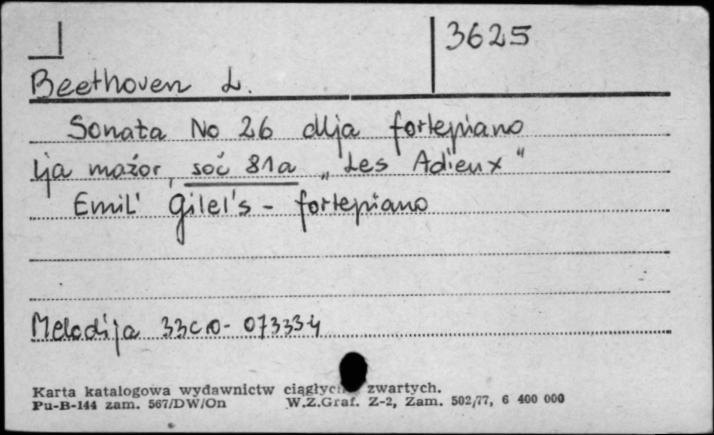 3625
Beethoven L.
Sonata No 26 dlja fortepiano
lja mažor, soč 81a „Les Adieux"
Emil' Gilel's - fortepiano
Melodija 33C10-07333-4
Karta katalogowa wydawnictw ciągłych zwartych.
Pu-B-144 zam. 567/DW/On W.Z.Graf. Z-2, Zam. 502/77, 6 400 000